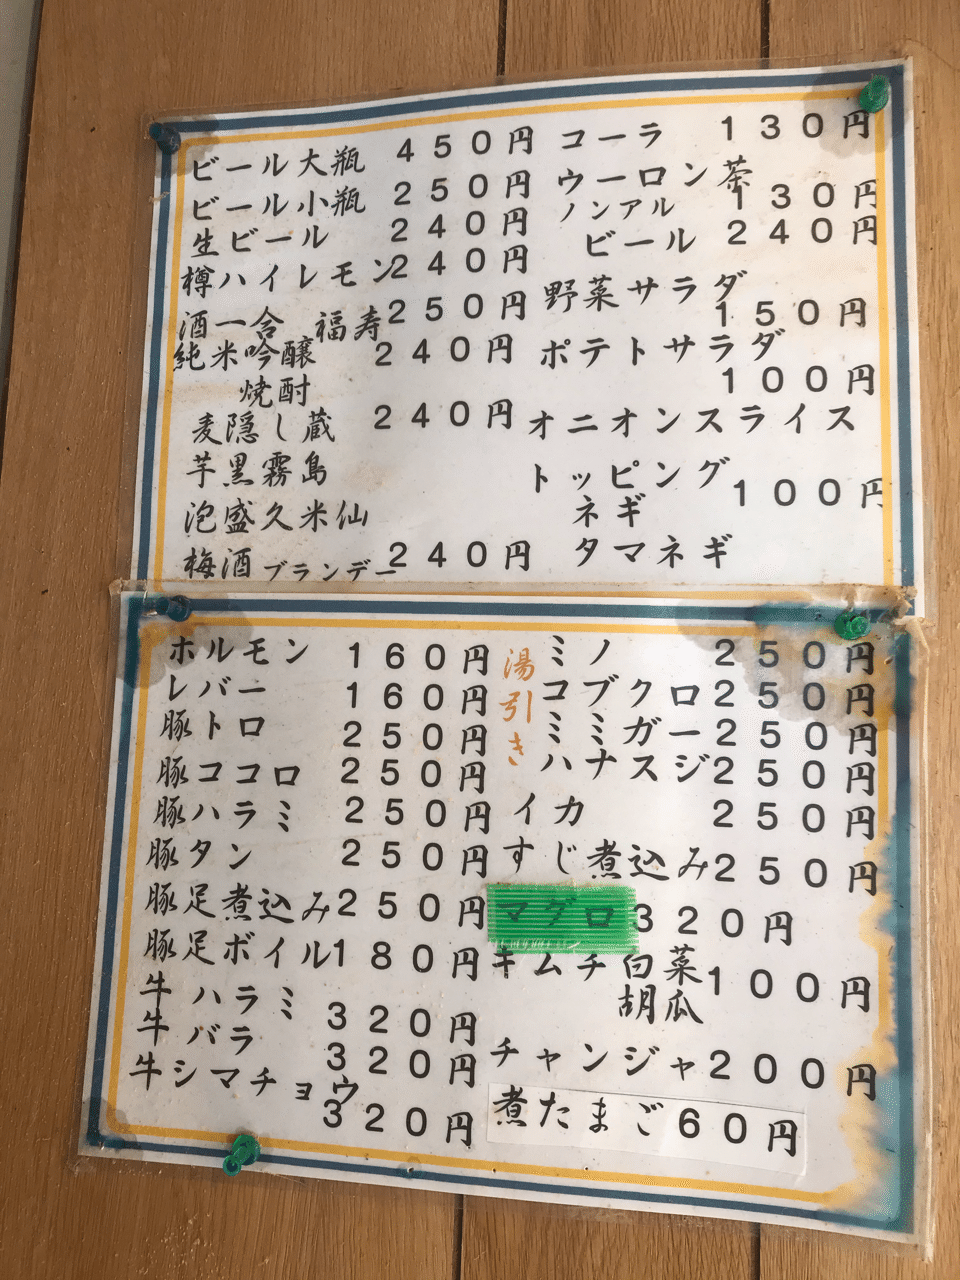 ビール大瓶 450円
ビール小瓶 250円
生ビール 240円
樽ハイレモン 240円
酒一合 福寿 250円
純米吟醸 240円
焼酎
麦隠し蔵 240円
芋黒霧島
泡盛久米仙
梅酒ブランデー 240円
コーラ 130円
ウーロン茶
130円
ノンアル
ビール 240円
野菜サラダ
150円
ポテトサラダ
100円
オニオンスライス
トッピング 100円
ネギ
タマネギ
ホルモン 160円
レバー 160円
豚トロ 250円
豚ココロ 250円
豚ハラミ 250円
豚タン 250円
豚足煮込み 250円
豚足ボイル 180円
牛ハラミ 320円
牛バラ 320円
牛シマチョウ
320円
湯引き
ミノ 250円
コブクロ 250円
ミミガー 250円
ハナスジ 250円
イカ 250円
すじ煮込み 250円
マグロ 320円
キムチ白菜 100円
胡瓜
チャンジャ 200円
煮たまご 60円